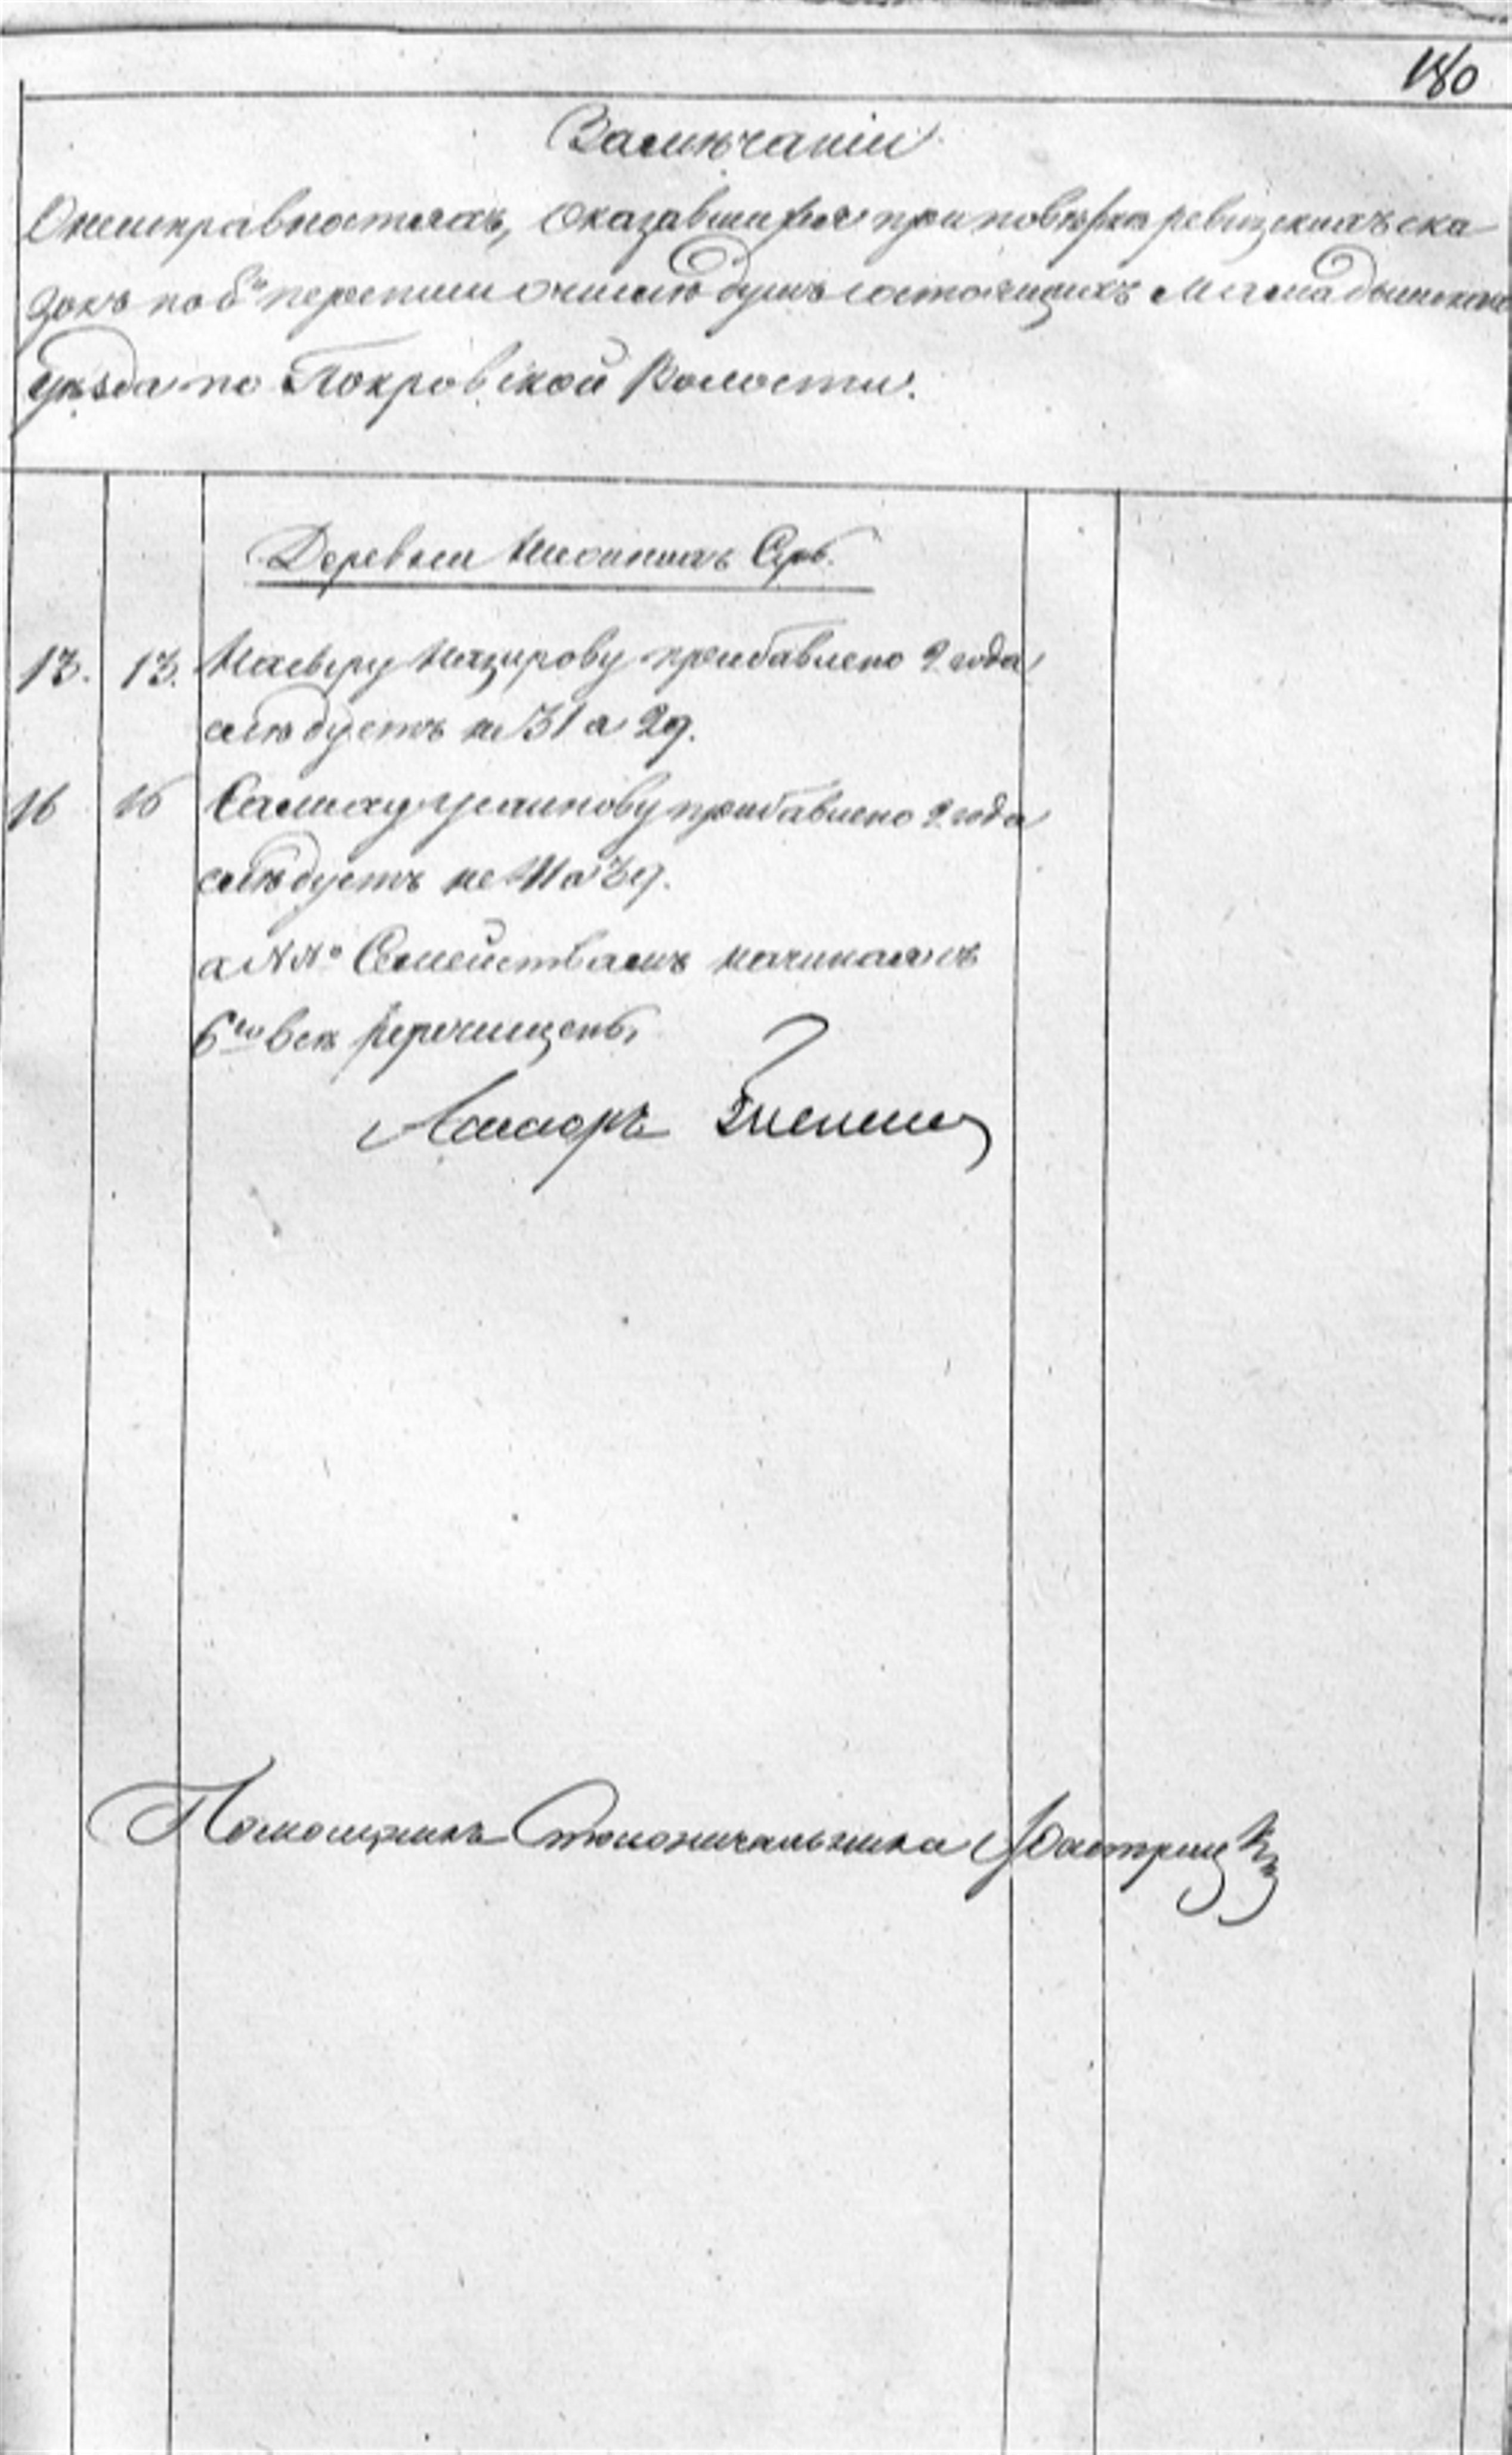 180
Замѣчаніи
О неисправностяхъ, оказавшихся при повѣркѣ ревизскихъ ска
зокъ по 8й переписи о числѣ душъ состоящихъ Мамадышскаго
уѣзда по Покровской Волости.
Деревьни
13. 13. Насыру Назирову прибавлено 2 года
слѣдуетъ не 31 а 29.
16 16 прибавлено 2 года
слѣдуетъ не 41 а 39.
а №№ Семействамъ начиная съ
6го всѣ перечищены,
Помощникъ Столоначальника